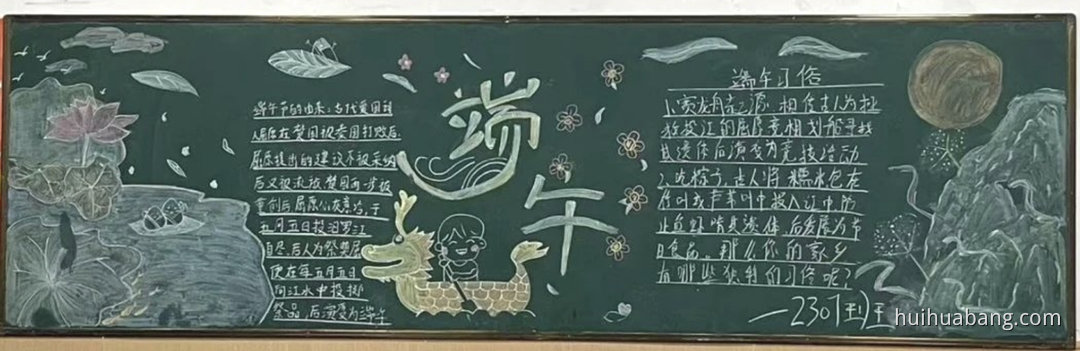 端午节的由来:古代爱国诗
人屈原在楚国被秦国打败后.
屈原提出的建议不被采纳
后又被流放 楚国再一步被
重创后屈原心灰意冷,于
五月五日投汨罗江
自尽.后人为祭奠屈
便在每五月五日
向江水中投掷
祭品,后演变为端午
端午
端午习俗
1、赛龙舟之源,相传古人为拯
救投江的屈原竞相划船寻找
其遗体后演变为竞技活动
2、吃粽子.古人将糯米包在
竹叶或芦苇叶中投入江中防
止鱼虾啃食遗体,后发展为节
日食品.那么你的家乡
有哪些独特的习俗呢?
—2301
huihuabang.com